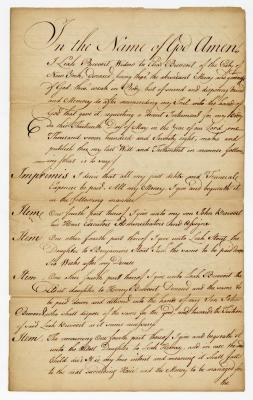 In the Name of God Amen
I Leah Brevoort, Widow to Elias Brevoort of the City of
New York, Deceased, being thro' the abundant Mercy and goodness
of God tho' weak in Body, but of sound and disposing Mind
and Memory, to wit recommending my Soul into the hands of
God that gave it, requesting a decent Interment for my Body
do this Thirteenth Day of May in the Year of our Lord one
Thousand seven hundred and Seventy make and
publish this my last Will and Testament in manner following
that is to say
Imprimis I desire that all my just debts and Funeral
Expences be paid. All my Money, I give and bequeath it
in the following manner
Item One fourth part thereof I give unto my son John Brevoort
his Heirs Executors Administrators and Assigns
Item One other fourth part thereof I give unto Leah Stout, the
Daughter to Benjamin Stout said the same to be paid
after my Decease
Item One other fourth part thereof I give unto Leah Brevoort the
Eldest daughter to Henry Brevoort Deceased and the same to
be paid down and delivered into the hands of my Son John
Brevoort who shall dispose of the same for the Use and towards the Tuition
of said Leah Brevoort as it seems necessary
Item The remaining One fourth part thereof I give and bequeath it
unto the Eldest Daughter to and in case the
Child dies it is my true intent and meaning it shall fall
to the next surviving Heir and the Money to be managed for
the